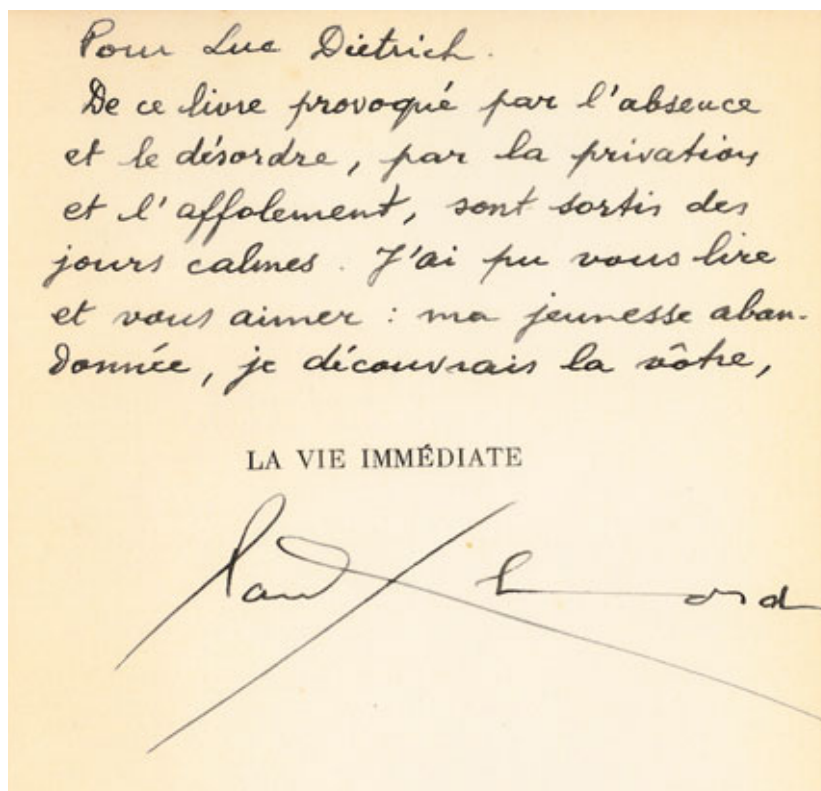 Pour Luc Dietrich.
De ce livre provoqué par l'absence
et le désordre, par la privation
et l'affolement, sont sortis des
jours calmes. J'ai pu vous lire
et vous aimer : ma jeunesse aban-
donnée, je découvrais la vôtre,
LA VIE IMMÉDIATE
Paul Eluard